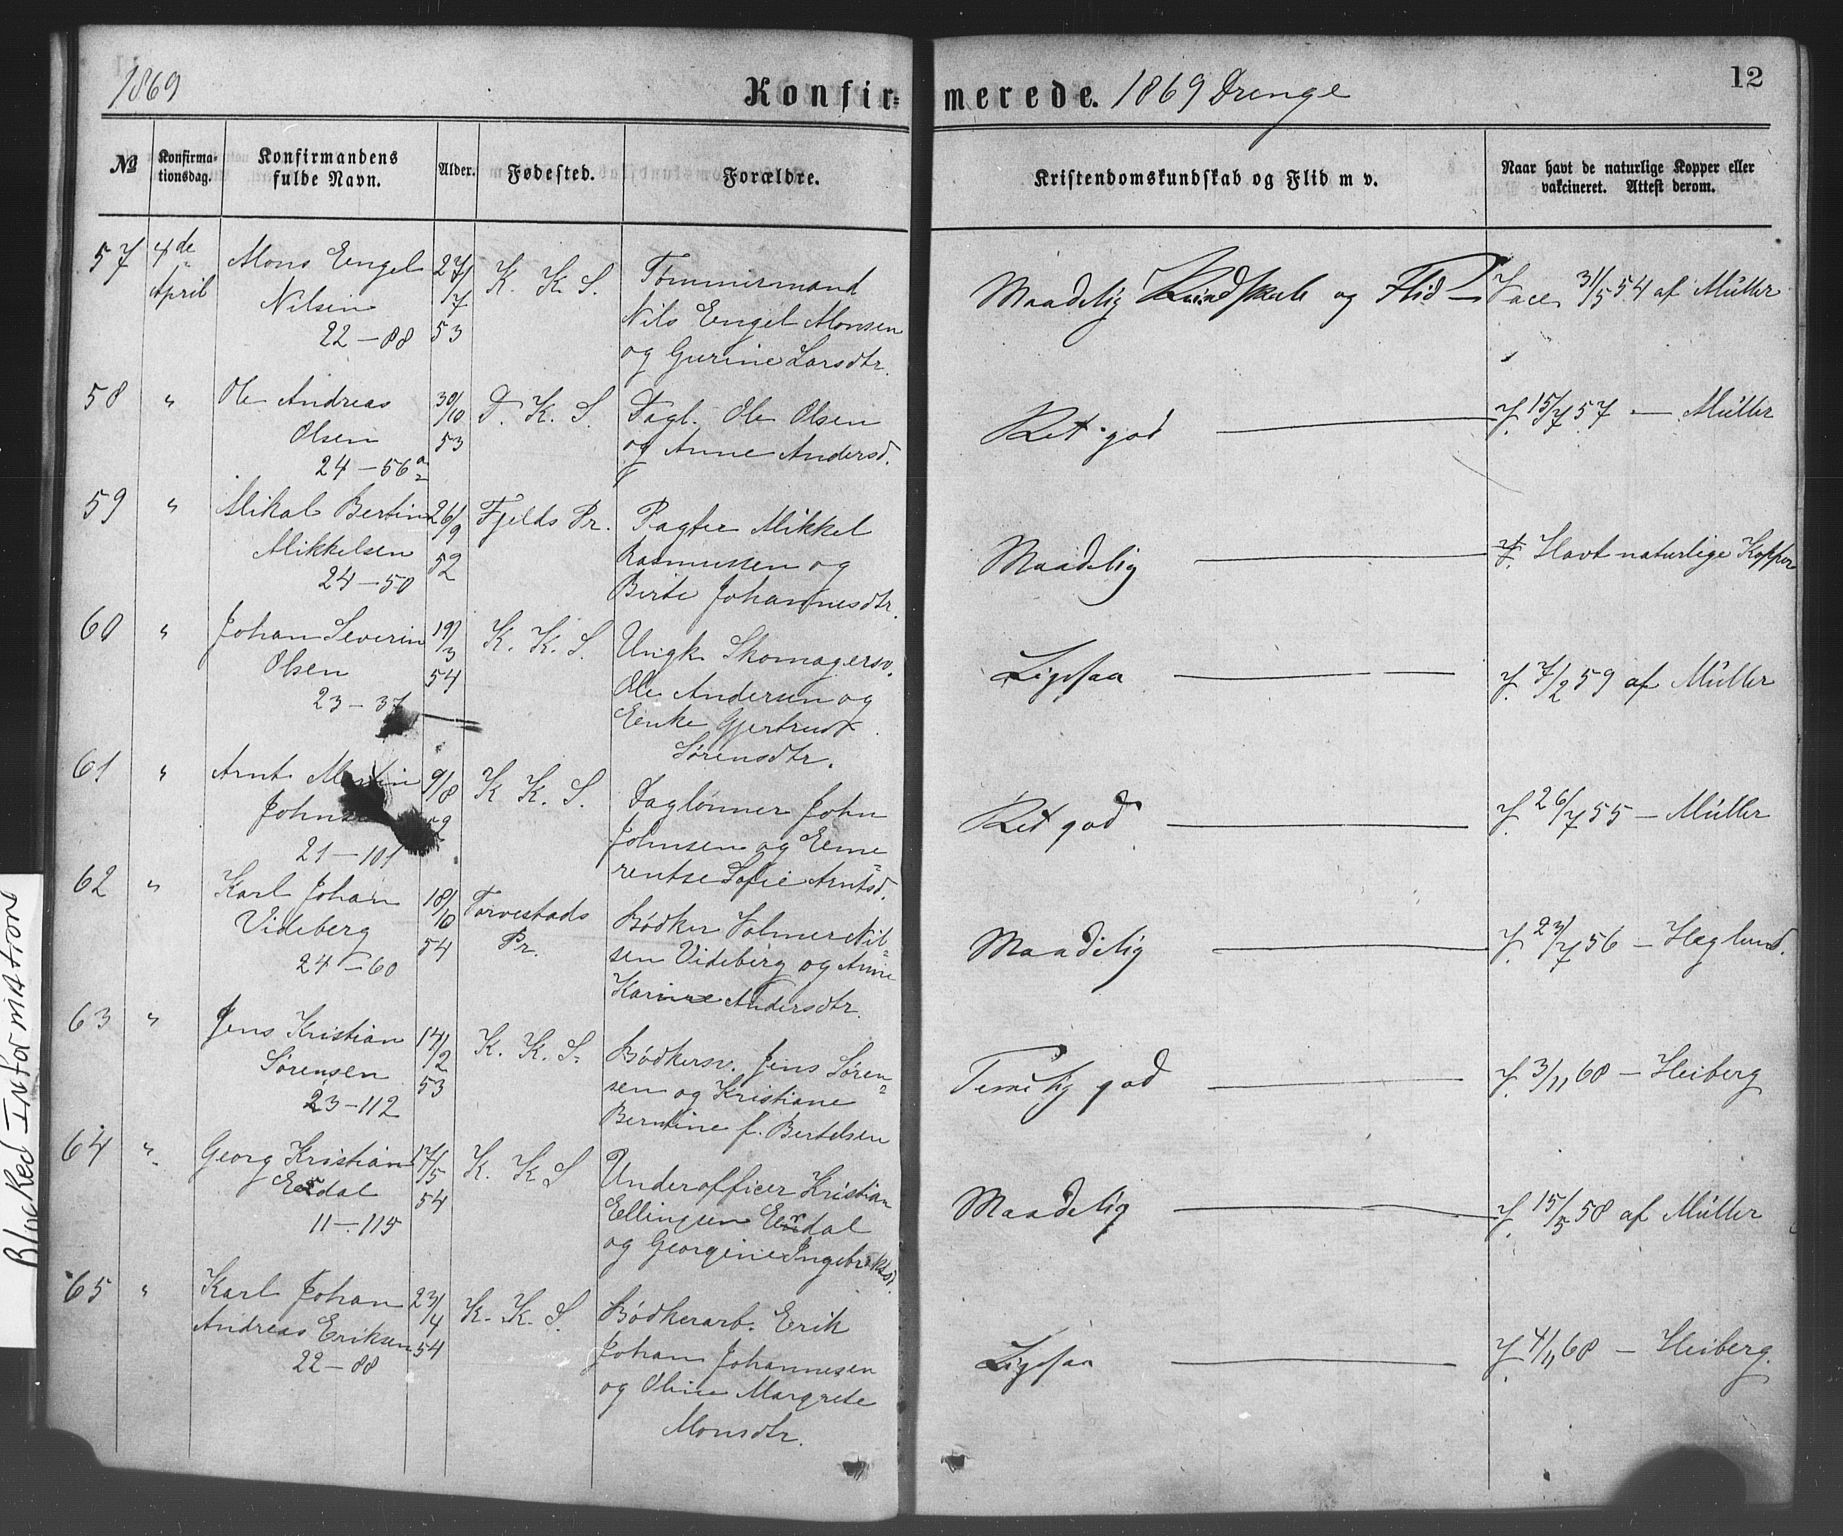 1869
Konfir=
merede. 1869 Drenge
12
№
Konfirma-
tionsdag.
Konfirmandens
fulde Navn.
Alder.
Fødested.
Forældre.
Kristendomskundskab og Flid m v.
Naar havt de naturlige Kopper eller
vakcineret. Attest derom.
57 4de April
Mons Engel
Nilsen
22 – 88
27/7 53
K. K. S.
Tømmermand
Nils Engel Monsen
og Gurine Larsdtr.
Maadelig Kundskab og Flid
Vacc. 31/5 54 af Müller
58 "
Ole Andreas
Olsen
24 – 56a
30/10 53
D. K. S.
Dagl. Ole Olsen
og Anne Andersd.
Ret god
15/7 57 — Müller
59 "
Mikal Bertin
Mikkelsen
24 – 50
26/9 52
Fjelds Pr.
Pagter Mikkel
Rasmussen og
Birte Johannesdtr.
Maadelig
Havt naturlige Kopper
60 "
Johan Severin
Olsen
23 – 37
19/3 54
K. K. S.
Ungk. Skomagersv.
Ole Andersen og
Enke Gjertrud
Sørensdtr.
Ligesaa
7/2 59 af Müller
61 "
Arnt Martin
21 – 101
9/8
K K. S.
Daglønner John
Johnsen og Eme=
rentse Sofie Arntsd.
Ret god
26/7 55 — Müller
62 "
Karl Johan
Videberg
24 – 60
18/10 54
Torvestads
Pr.
Bødker Volmer Nil=
sen Videberg og Anne
Karine Andersdtr.
Maadelig
23/7 56 — Heglund.
63 "
Jens Kristian
Sørensen
23 – 112
14/2 53
K. K. S.
Bødkersv. Jens Søren=
sen og Kristiane
Berntine f. Bertelsen
Temlig god
3/11 68 — Heiberg
64 "
Georg Kristian
Erdal
11 – 115
17/5 54
K. K S
Underofficer Kristian
Ellingsen Erdal
og Georgine Ingebriktsd.
Maadelig
15/5 58 af Müller
65 "
Karl Johan
Andreas Eriksen
22 – 88
23/4 54
K. K. S.
Bødkerarb. Erik
Johan Johannesen
og Oline Margrete
Monsdtr.
Ligesaa
4/11 68 — Heiberg.
Blocked Informations